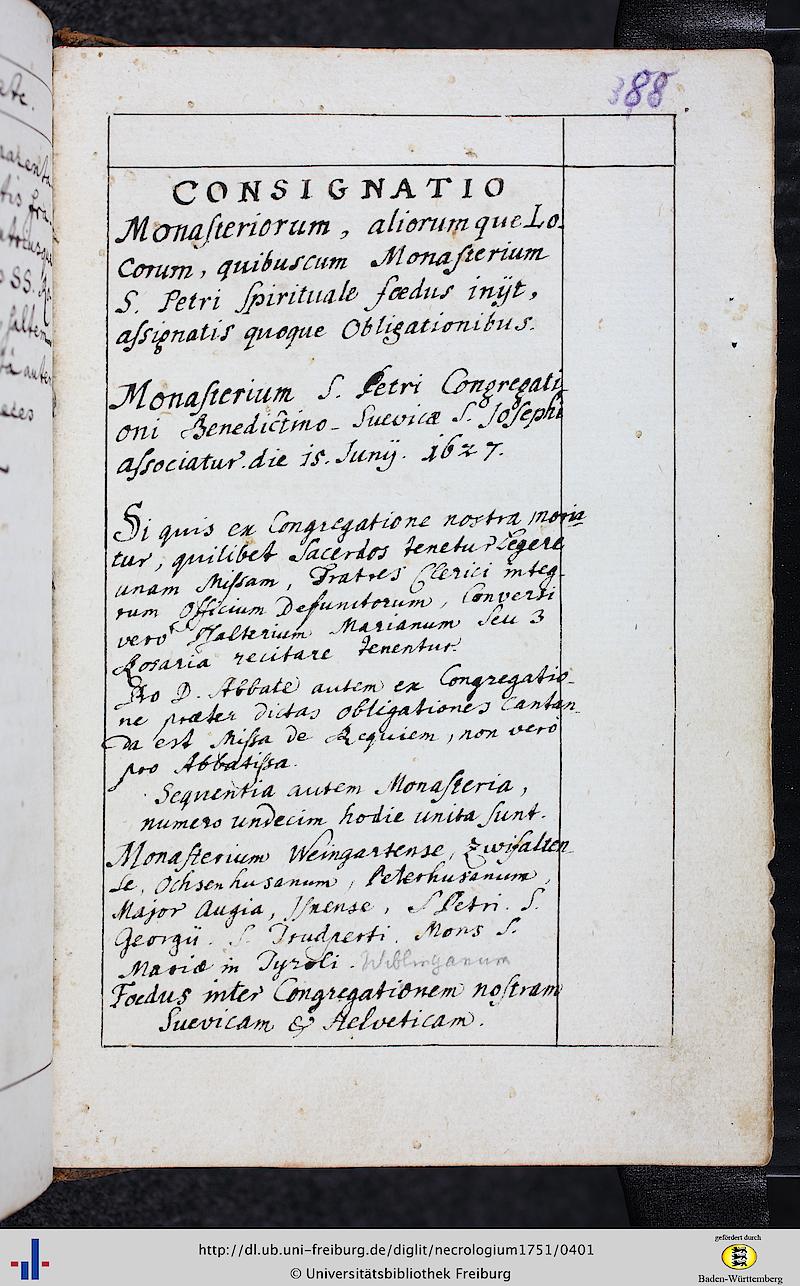 388
CONSIGNATIO
Monasteriorum, aliorumque Lo-
corum, quibuscum Monasterium
S. Petri Spirituale fœdus inijt,
assignatis quoque Obligationibus.
Monasterium S. Petri Congregati
oni Benedictino-Suevicæ S. Josephi
associatur die 15. Junij. 1627.
Si quis ex Congregatione nostra moria
tur, quilibet Sacerdos tenetur Legere
unam Missam, Fratres Clerici integ-
rum Officium Defunctorum, Conversi
verò Psalterium Marianum seu 3
Rosaria recitare tenentur.
Pro D. Abbate autem ex Congregatio-
ne præter dictas obligationes Cantan-
da est Missa de Requiem, non verò
pro Abbatissa.
Sequentia autem Monasteria,
numero undecim hodie unita sunt.
Monasterium Weingartense, Zwifalten
se, Ochsenhusanum, Peterhusanum,
Major Augia, Isnense, S Petri. S.
Georgii. S. Trudperti. Mons S.
Mariæ in Tyroli. Wiblinganum
Foedus inter Congregationem nostram
Suevicam & Helveticam.
http://dl.ub.uni-freiburg.de/diglit/necrologium1751/0401
© Universitätsbibliothek Freiburg
gefördert durch
Baden-Württemberg